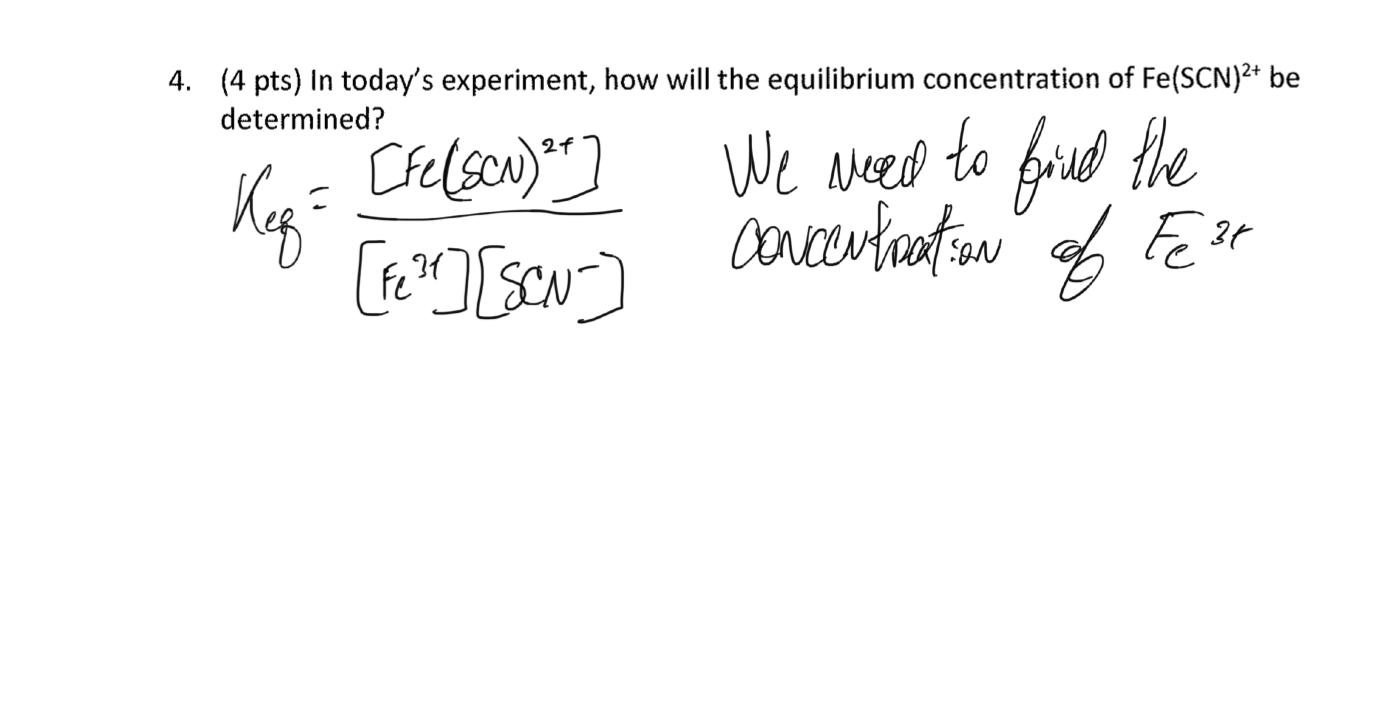 4. (4 pts) In today's experiment, how will the equilibrium concentration of Fe(SCN)²⁺ be
determined?
Keq = [Fe(SCN)²⁺] / [Fe³⁺][SCN⁻]
We need to find the
concentration of Fe³⁺